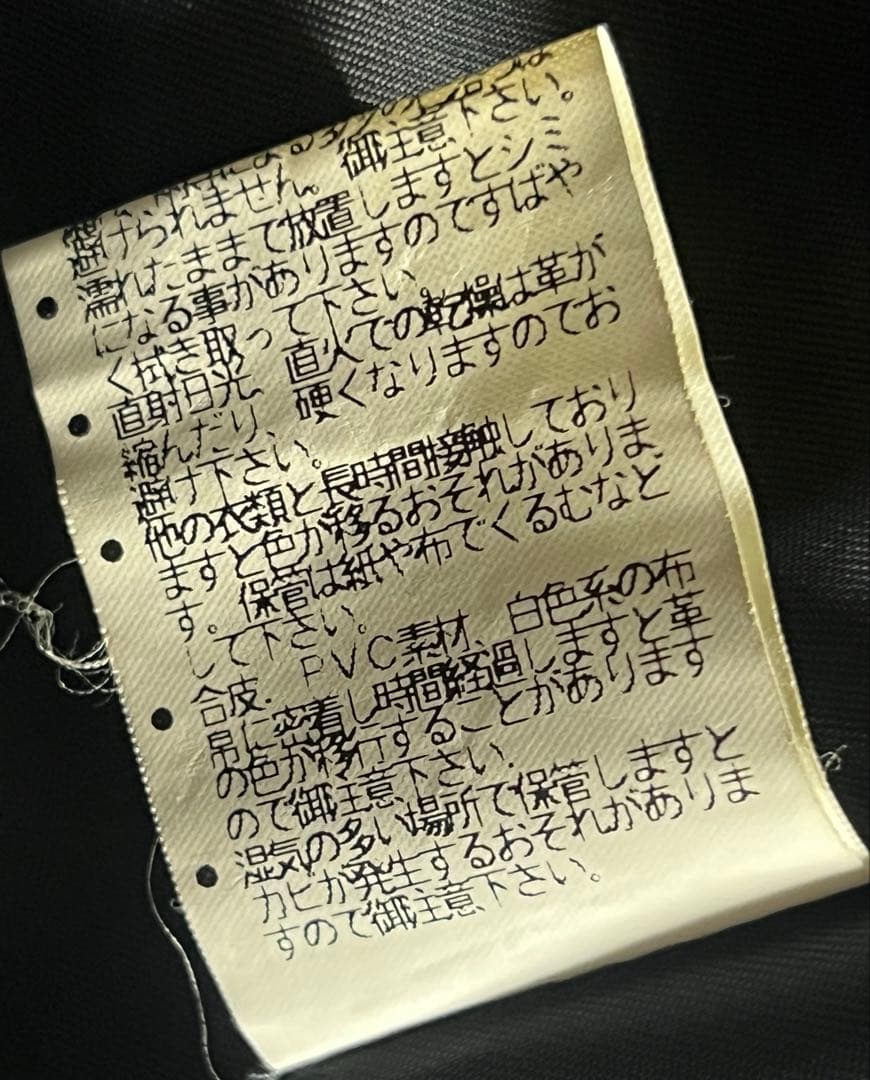 による多少の
避けられません。御注意下さい。
●濡れたままで放置しますとシミ
になる事がありますのですばや
く拭き取って下さい。
●直射日光、直火での乾燥は革が
縮んだり、硬くなりますのでお
避け下さい。
●他の衣類と長時間接触しており
ますと色が移るおそれがありま
す。保管は紙や布でくるむなど
して下さい。
●合皮、PVC素材、白色系の布
帛に密着し時間経過しますと革
の色が移行することがあります
ので御注意下さい。
●湿気の多い場所で保管しますと
カビが発生するおそれがありま
すので御注意下さい。